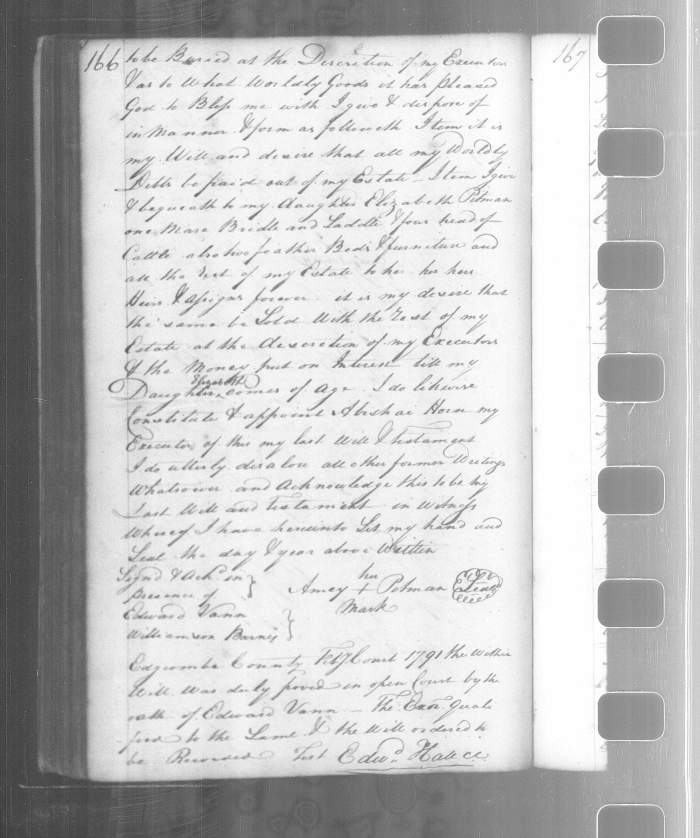 166
to be Buried at the Discretion of my Executor
& as to What Worldly Goods it has pleased
God to Bless me with I give & dispose of
in Manner & form as followeth Item it is
my Will and desire that all my Worldly
Debts be paid out of my Estate - Item I give
& bequeath to my daughter Elizabeth Pitman
one Mare Bridle and Saddle & four head of
Cattle also two feather Beds & furniture and
all the rest of my Estate to her her heirs
Heirs & assigns forever it is my desire that
the same be Sold With the Rest of my
Estate at the descretion of my Executors
& the Money put on Interest till my
Daughter Elizabeth comes of age. I do likewise
Constitute & appoint Abishai Horn my
Executor of this my last Will & testament
I do utterly disalow all other former Writings
Whatsoever and Acknowledge this to be my
Last Will and testament in Witness
Whereof I have hereunto Set my hand and
Seal the day & year above Written
Signd & Ackd in
presence of
Edward Vann
Williamson Barnes
her
Amey + Pitman Seal
Mark
Edgcombe County Feby Court 1791 the Within
Will Was duly proved in open Court by the
oath of Edward Vann - The Exor. Quali
fied to the Same & the Will ordered to
be Recorded Test Edwd. Hall CC
167